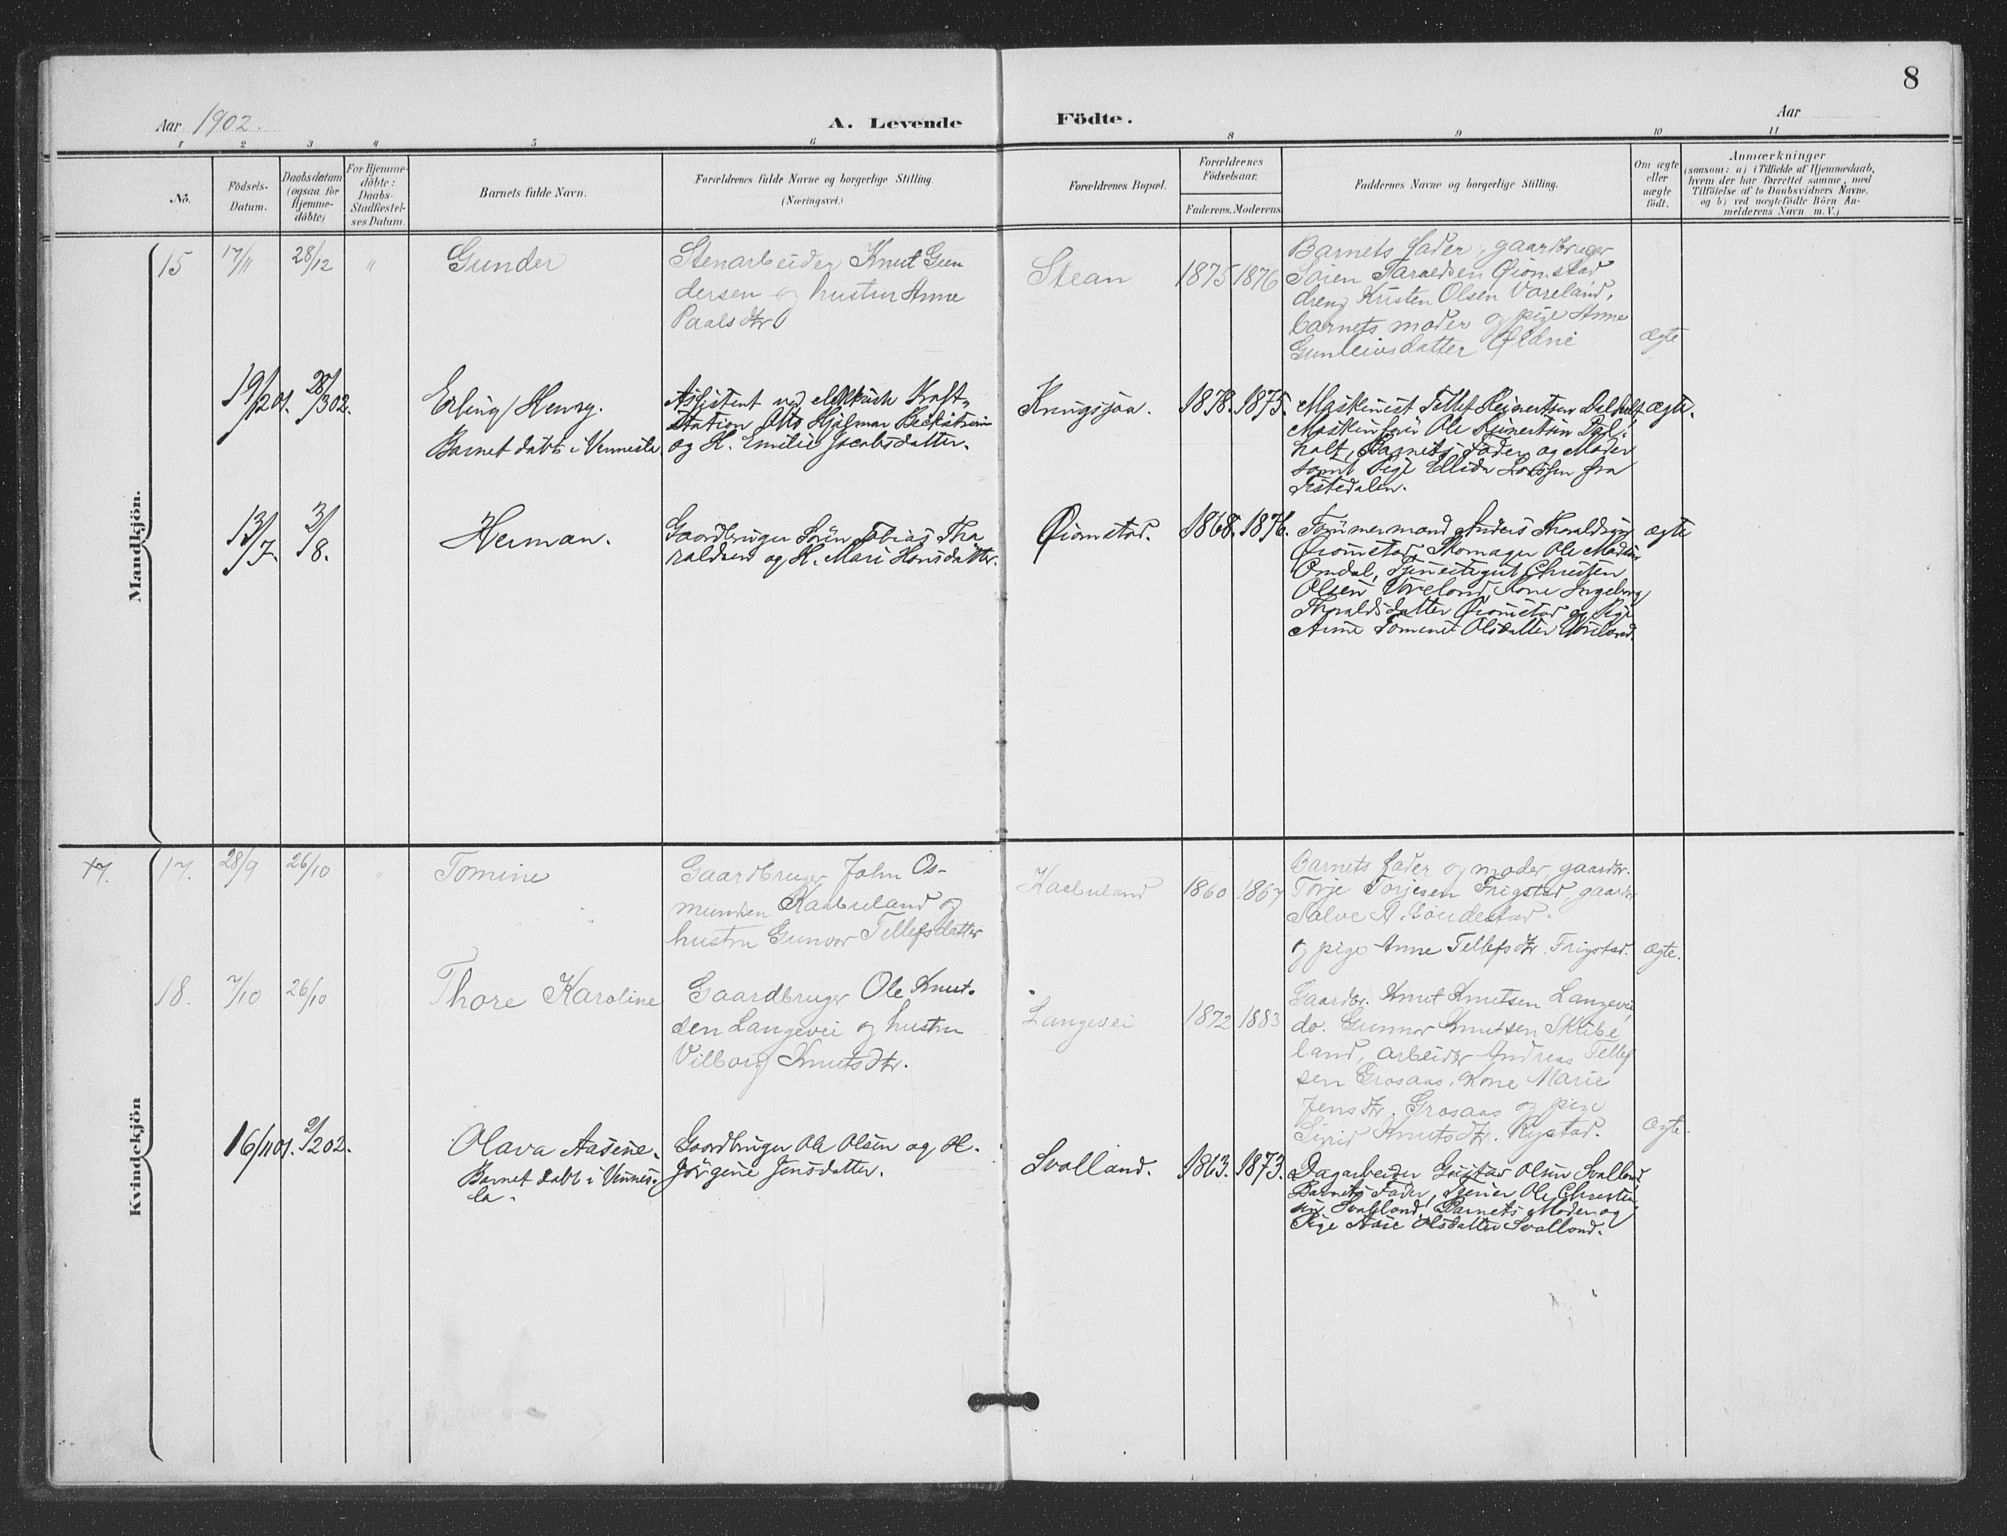 8
Aar 1902.
A. Levende Födte.
Aar
1 2 3 4 5 6 8 9 10 11
No.
Födsels-
Datum.
Daabsdatum
(ogsaa for
Hjemme-
döbte)
For Hjemme-
döbte:
Daabs-
Stadfæstel-
ses Datum.
Barnets fulde Navn.
Forældrenes fulde Navne og borgerlige Stilling
(Næringsvei.)
Forældrenes Bopæl.
Forældrenes
Födselsaar.
Faderens. Moderens
Faddernes Navne og borgerlige Stilling.
Om ægte
eller
uægte
födt.
Anmærkninger
(saasom: a) i Tilfælde af Hjemmedaab,
hvem der har forrettet samme, med
Tilföielse af to Daabsvidners Navne.
og b) ved uægtefödte Börn An-
melderens Navn m. V.)
Mandkjön.
15
17/11
28/12
"
Gunder
Stenarbeider Knut Gun
dersen og hustru Anne
Paalsdtr
Stean
1875
1876
Barnets fader, gaardbruger
Søren Taraldsen Øiomstad
dreng Kristen Olsen Vareland,
barnets moder og pige Anne
Gunleivsdatter
ægte
19/1201.
28/302.
Erling Henry.
Barnet døbt i Vennesla
Assistent ved elektrisk Kraft-
station Otto Hjalmar
og H. Emilie Jacobsdatter.
1878.
1875.
Maskinist Tellef Reinertsen Dalholt,
Ole Reinertsen Dal-
holt, Barnets Fader og Moder
samt Pige Ellida fra
Tistedalen.
ægte.
13/7.
3/8.
Herman.
Gaardbruger Sören Tobias Tha
raldsen og H. Mari Hansdatter.
Øiomstad.
1868.
1876.
Tømmermand Anders Tharaldsen
Øiomstad, Skomager Ole Madsen
Omdal, Tjenestegut Christen
Olsen Voreland, Kone Ingeborg
Tharaldsdatter Øiomstad og Pige
Anne Tomine Olsdatter Voreland.
ægte
Kvindekjön
17.
17.
28/9
26/10
"
Tomine
Gaardbruger John Os-
mundsen Kaabuland og
hustru Gunvor Tellefsdatter
Kaabuland
1860
1867
Barnets fader og moder, gaardbr.
Torje Torjesen Frigstad, gaardbr
Salve A.
og pige Anne Tellefsdtr. Frigstad.
ægte.
18.
7/10
26/10
"
Thore Karoline
Gaardbruger Ole Knut-
sen Langevei og hustru
Vilborg Knutsdtr.
Langevei
1872
1883
Gaardbr. Knut Knutsen Langevei,
do. Gunnar Knutsen Skibe
land, arbeider Andreas Tellef
sen Grosaas, Kone Marie
Jensdtr. Grosaas og pige
Sigrid Knutsdtr. Rystad.
ægte.
16/1101.
9/202.
Olava Aasene.
Barnet døbt i Vennes-
la.
Gaardbruger Ole Olsen og H.
Jörgine Jensdatter.
Svalland.
1863.
1873.
Dagarbeider Gustav Olsen Svalland
Barnets Fader, Tjener Ole Christen
sen Svalland, Barnets Moder og
Pige Aase Olsdatter Svalland.